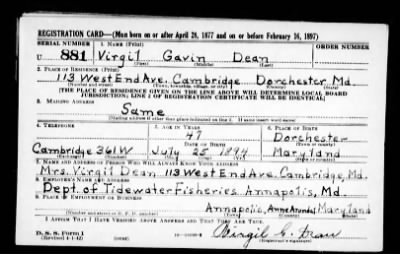 REGISTRATION CARD—(Men born on or after April 28, 1877 and on or before February 16, 1897)
SERIAL NUMBER 1. NAME (Print)
U 881 Virgil Gavin Dean
(First) (Middle) (Last)
2. PLACE OF RESIDENCE (Print)
113 West End Ave. Cambridge Dorchester Md.
(Number and street) (Town, township, village, or city) (County) (State)
[THE PLACE OF RESIDENCE GIVEN ON THE LINE ABOVE WILL DETERMINE LOCAL BOARD
JURISDICTION; LINE 2 OF REGISTRATION CERTIFICATE WILL BE IDENTICAL]
3. MAILING ADDRESS
Same
[Mailing address if other than place indicated on line 2. If same insert word same]
4. TELEPHONE 5. AGE IN YEARS 6. PLACE OF BIRTH
47 Dorchester
DATE OF BIRTH (Town or county)
Cambridge 361W July 25 1894 Maryland
(Exchange) (Number) (Mo.) (Day) (Yr.) (State or country)
7. NAME AND ADDRESS OF PERSON WHO WILL ALWAYS KNOW YOUR ADDRESS
Mrs. Virgil Dean 113 West End Ave. Cambridge, Md.
8. EMPLOYER'S NAME AND ADDRESS
Dept. of Tidewater Fisheries Annapolis, Md.
9. PLACE OF EMPLOYMENT OR BUSINESS
Annapolis, Anne Arundel Maryland
(Number and street or R. F. D. number) (Town) (County) (State)
I AFFIRM THAT I HAVE VERIFIED ABOVE ANSWERS AND THAT THEY ARE TRUE.
D. S. S. Form 1 Virgil G. Dean
(Revised 4-1-42) (Registrant's signature)